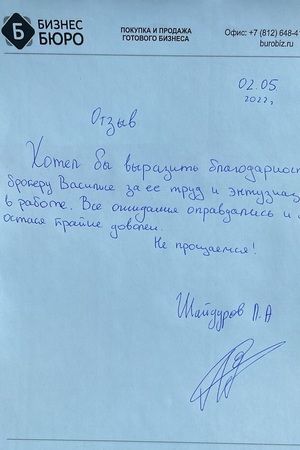 БИЗНЕС
БЮРО
ПОКУПКА И ПРОДАЖА
ГОТОВОГО БИЗНЕСА
Офис: +7 (812) 648-4
burobiz.ru
02.05.
2022г.
Отзыв
Хотел бы выразить благодарнос
брокеру Василисе за ее труд и энтузиаз
в работе. Все ожидания оправдались и
остался крайне доволен.
Не прощаемся!
Шайдуров П.А